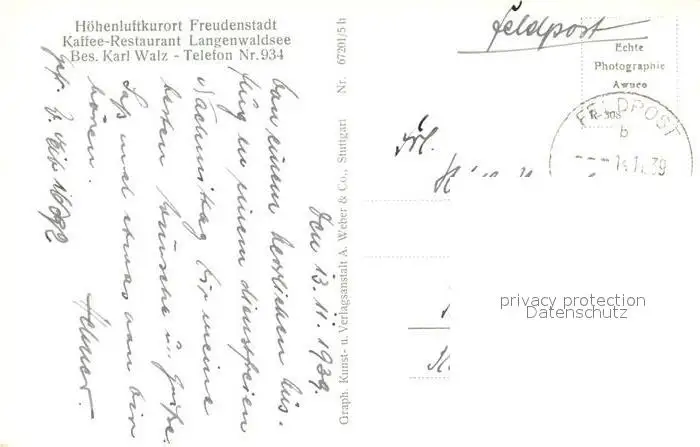 Höhenluftkurort Freudenstadt
Kaffee-Restaurant Langenwaldsee
Bes. Karl Walz - Telefon Nr. 934
Den 13.11.1939.
Von einem herrlichen Aus-
flug an einem dienstfreien
Nachmittag Dir meine
besten Wünsche u. Grüße.
Laß mal etwas von Dir
hören.
Helmut.
Graph. Kunst- u. Verlagsanstalt A. Weber & Co., Stuttgart Nr. 67201/5 h
Feldpost
Echte
Photographie
Awuco
R-308
FELDPOST
b
39
Frl.
privacy protection
Datenschutz